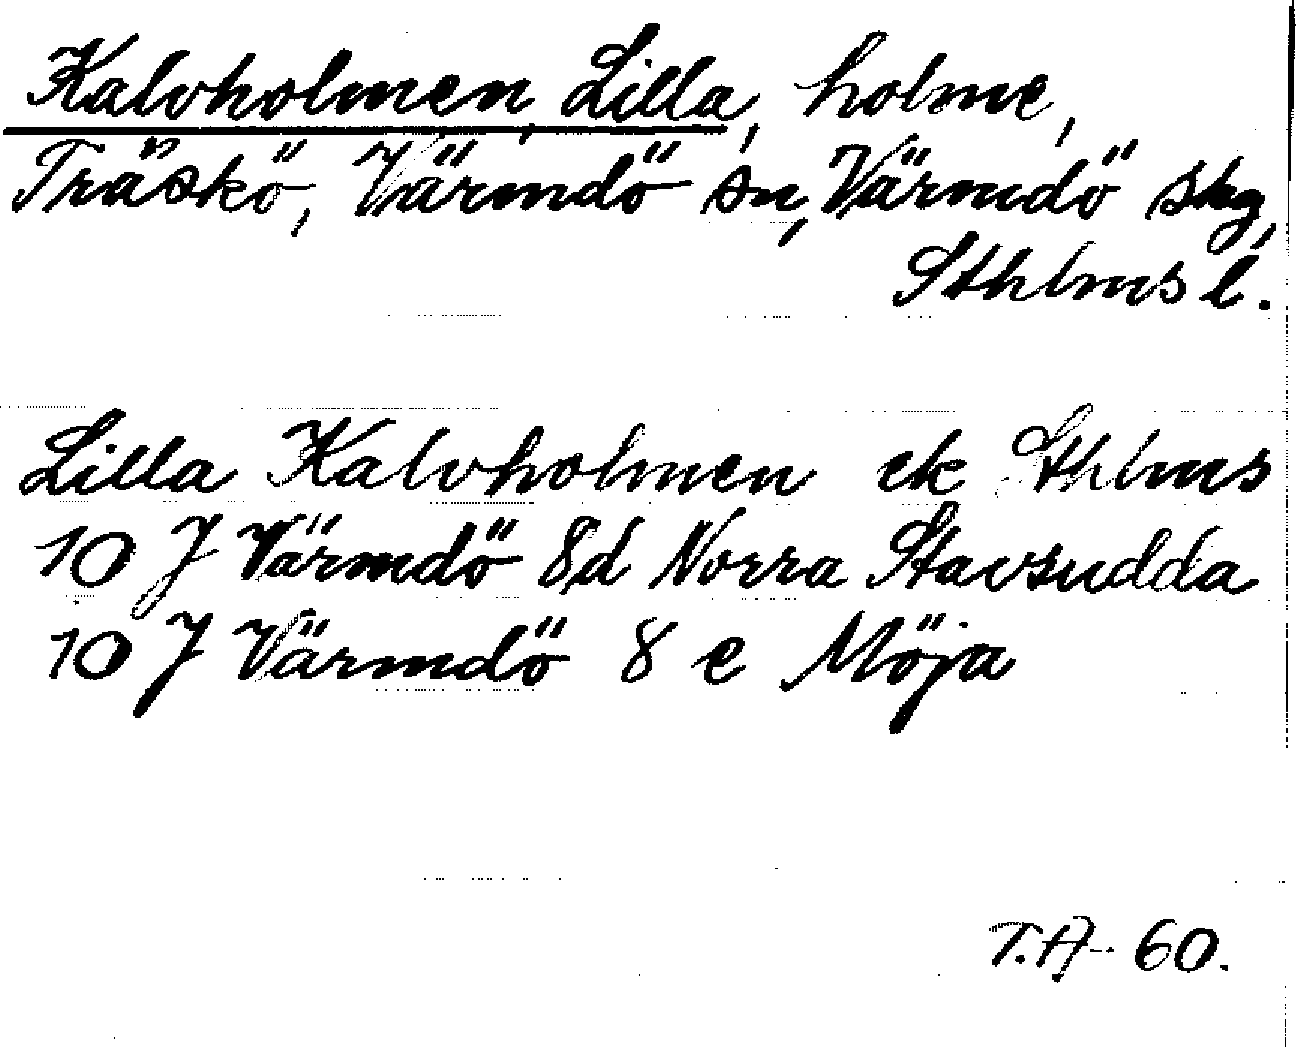 Kalvholmen, Lilla, holme,
Träskö, Värmdö sn, Värmdö skg,
Sthlms l.
Lilla Kalvholmen ek Sthlms
10 J Värmdö 8d Norra Stavsudda
10 J Värmdö 8 e Möja
T.A- 60.